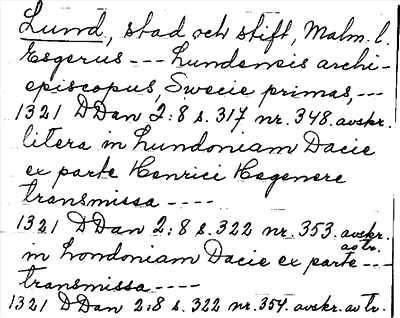 Lund, stad och stift, Malm. l.
Esgerus --- Lundensis archi-
episcopus, Swecie primas, ---
1321 DDan 2:8 s. 317 nr. 348. avskr.
litera in Lundoniam Dacie
ex parte Henrici Hegenere
transmissa ----
1321 DDan 2:8 s. 322 nr. 353. avskr.
av tr.
in Londoniam Dacie ex parte ---
transmissa ----
1321 DDan 2:8 s. 322 nr. 354. avskr. av tr.